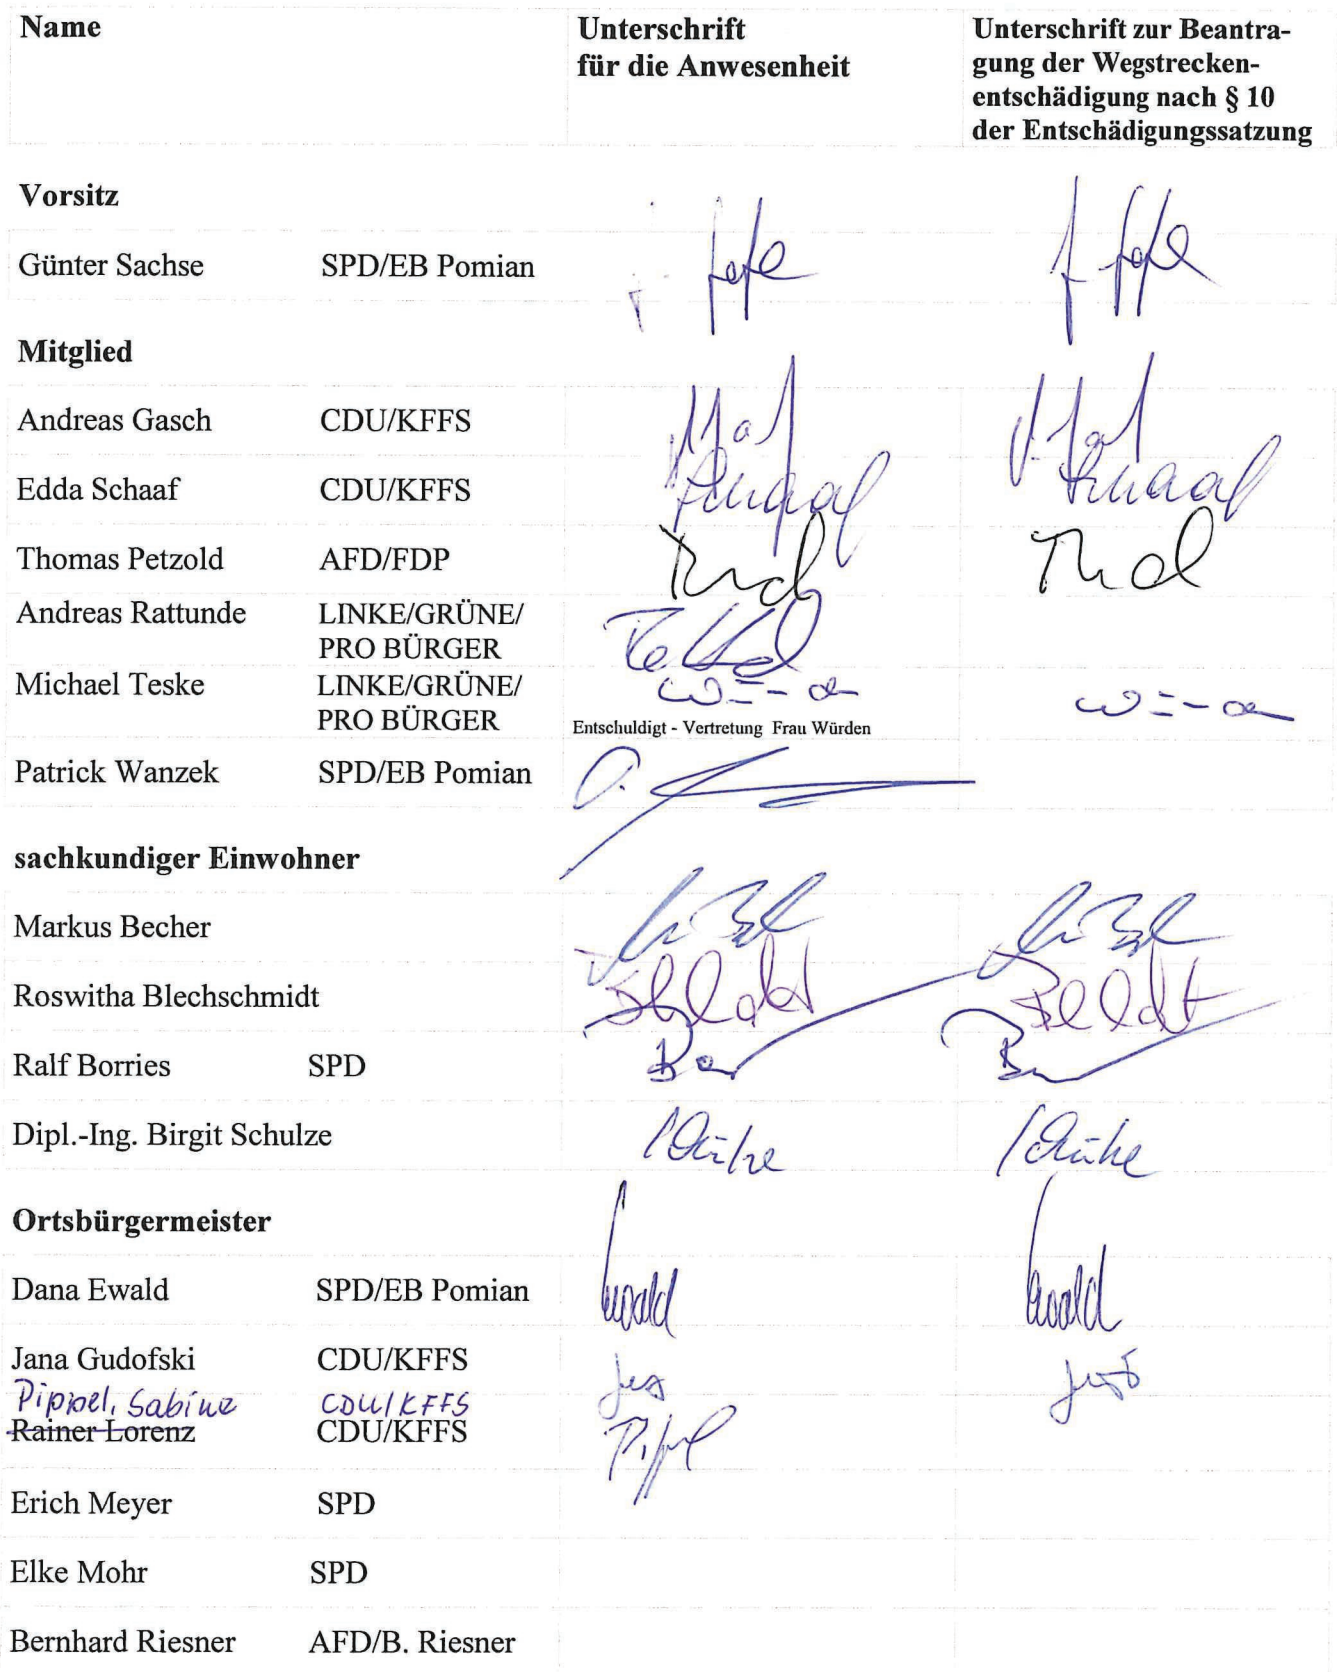 Name
Unterschrift
für die Anwesenheit
Unterschrift zur Beantra-
gung der Wegstrecken-
entschädigung nach § 10
der Entschädigungssatzung
Vorsitz
Günter Sachse SPD/EB Pomian
Mitglied
Andreas Gasch CDU/KFFS
Edda Schaaf CDU/KFFS
Schaaf Schaaf
Thomas Petzold AFD/FDP
Andreas Rattunde LINKE/GRÜNE/
PRO BÜRGER
Michael Teske LINKE/GRÜNE/
PRO BÜRGER
Entschuldigt - Vertretung Frau Würden
Patrick Wanzek SPD/EB Pomian
sachkundiger Einwohner
Markus Becher
Roswitha Blechschmidt
Ralf Borries SPD
Dipl.-Ing. Birgit Schulze
Schulze Schulze
Ortsbürgermeister
Dana Ewald SPD/EB Pomian
Ewald Ewald
Jana Gudofski CDU/KFFS
Pippel, Sabine CDU/KFFS
Rainer Lorenz CDU/KFFS
Pippel
Erich Meyer SPD
Elke Mohr SPD
Bernhard Riesner AFD/B. Riesner